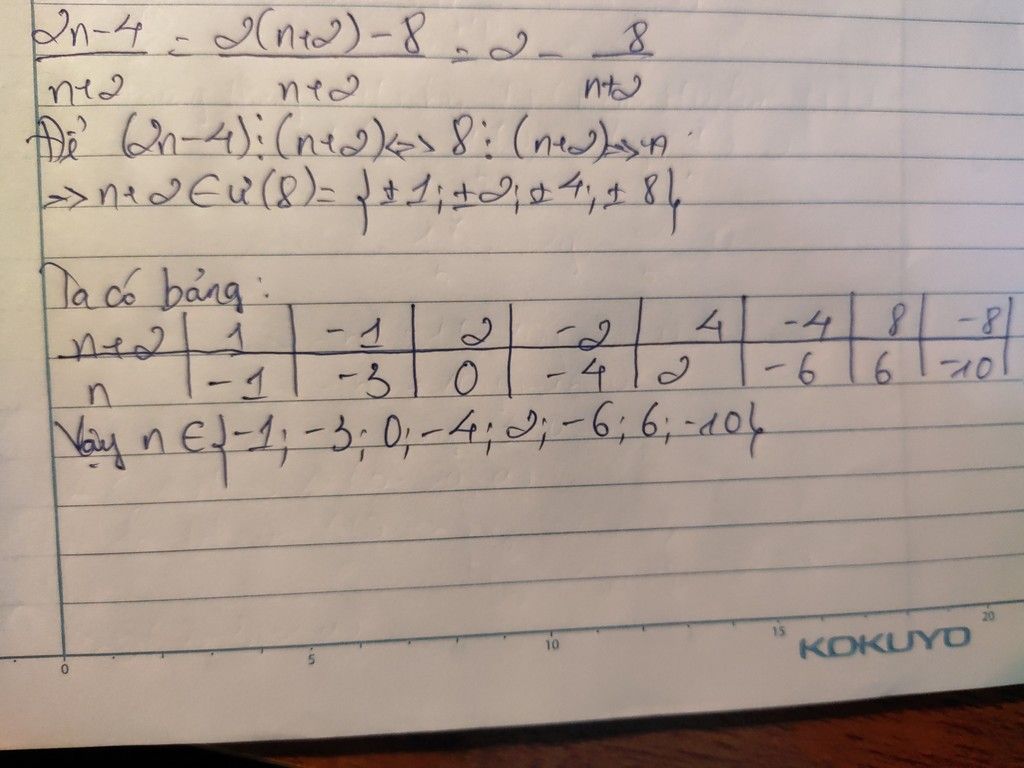 2n-4 / n+2 = 2(n+2)-8 / n+2 = 2 - 8 / n+2
Để (2n-4)⋮(n+2)<=> 8⋮(n+2)
=> n+2 ∈ Ư(8)= {±1;±2;±4;±8}
Ta có bảng:
n+2 | 1 | -1 | 2 | -2 | 4 | -4 | 8 | -8
n | -1 | -3 | 0 | -4 | 2 | -6 | 6 | -10
Vậy n ∈ {-1; -3; 0; -4; 2; -6; 6; -10}
0 5 10 15 20
KOKUYO